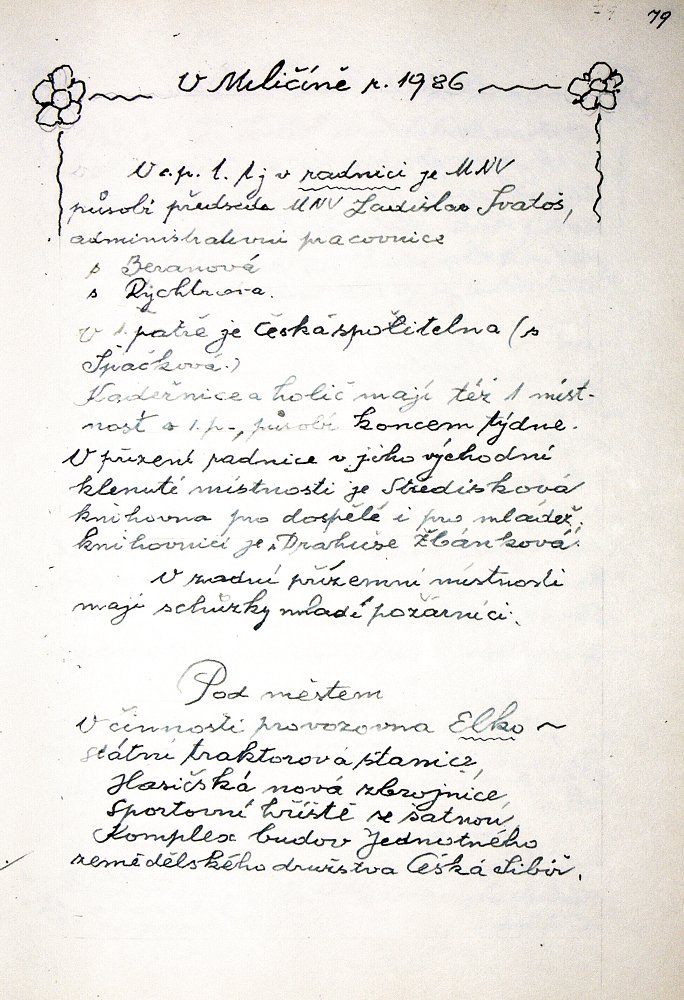 79
V Miličíně r. 1986
V č.p. 1. tj v radnici je MNV
působí předseda MNV Ladislav Svatoš,
administrativní pracovnice
s Beranová
s Rychtrova.
v 1. patře je Česká spořitelna (s
Špačková.)
Kadeřnice a holič mají též 1 míst-
nost v 1.p., působí koncem týdne.
V přízení radnice v jeho východní
klenuté místnosti je Středisková
knihovna pro dospělé i pro mládež,
knihovnicí je Drahuše Žbánková.
V zadní přízemní místnosti
mají schůzky mladí požárníci.
Pod městem
V činnosti provozovna Elko –
státní traktorová stanice,
Hasičská nová zbrojnice,
Sportovní hřiště se šatnou,
Komplex budov Jednotného
zemědělského družstva Česká Sibiř.